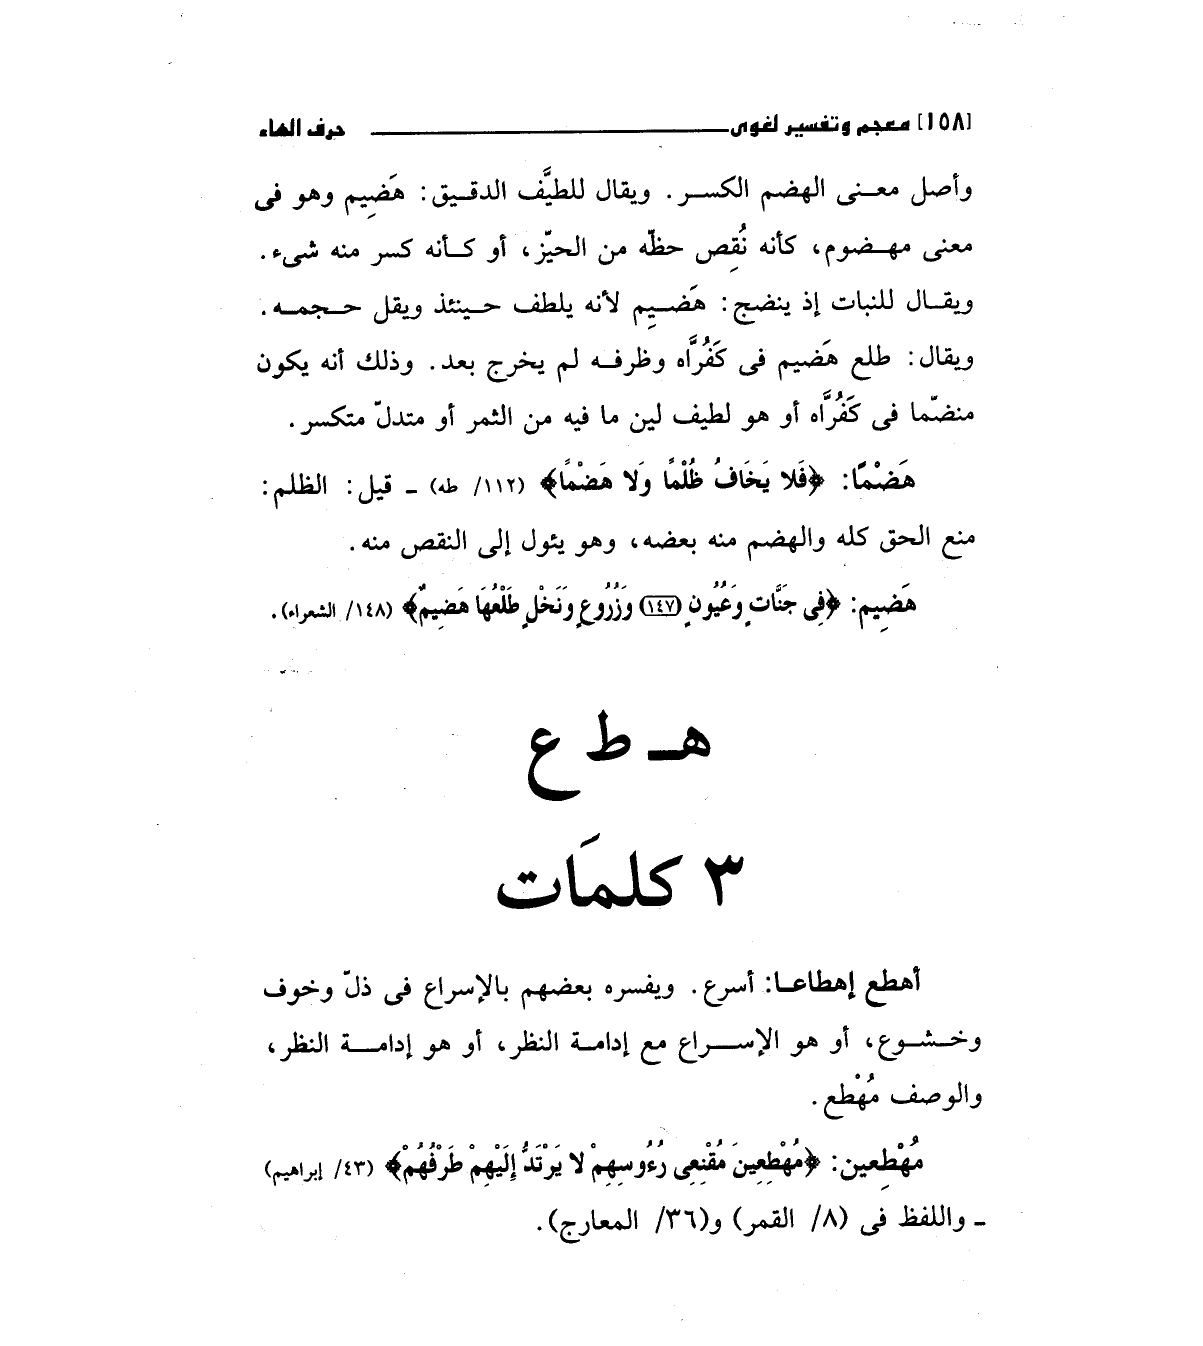 [١٥٨] معجم وتفسير لغوى حرف الهاء
وأصل معنى الهضم الكسر. ويقال للطيَّف الدقيق: هَضِيم وهو فى
معنى مهضوم، كأنه نُقِص حظّه من الحيّز، أو كأنه كسر منه شىء.
ويقال للنبات إذ ينضج: هَضيِم لأنه يلطف حينئذ ويقل حجمه.
ويقال: طلع هَضيم فى كَفُرَّاه وظرفه لم يخرج بعد. وذلك أنه يكون
منضمّا فى كَفُرَّاه أو هو لطيف لين ما فيه من الثمر أو متدلّ متكسر.
هَضْمًا: ﴿فَلا يَخَافُ ظُلْمًا وَلا هَضْمًا﴾ (١١٢/ طه) ـ قيل: الظلم:
منع الحق كله والهضم منه بعضه، وهو يئول إلى النقص منه.
هَضِيم: ﴿فِى جَنَّاتٍ وَعُيُونٍ (١٤٧) وَزُرُوعٍ وَنَخْلٍ طَلْعُهَا هَضِيمٌ﴾ (١٤٨/ الشعراء).
هـ ط ع
٣ كلمَات
أهطع إهطاعا: أسرع. ويفسره بعضهم بالإسراع فى ذلّ وخوف
وخشوع، أو هو الإسراع مع إدامة النظر، أو هو إدامة النظر،
والوصف مُهْطع.
مُهْطِعين: ﴿مُهْطِعِينَ مُقْنِعِى رُءُوسِهِمْ لا يَرْتَدُّ إِلَيْهِمْ طَرْفُهُمْ﴾ (٤٣/ إبراهيم)
ـ واللفظ فى (٨/ القمر) و(٣٦/ المعارج).